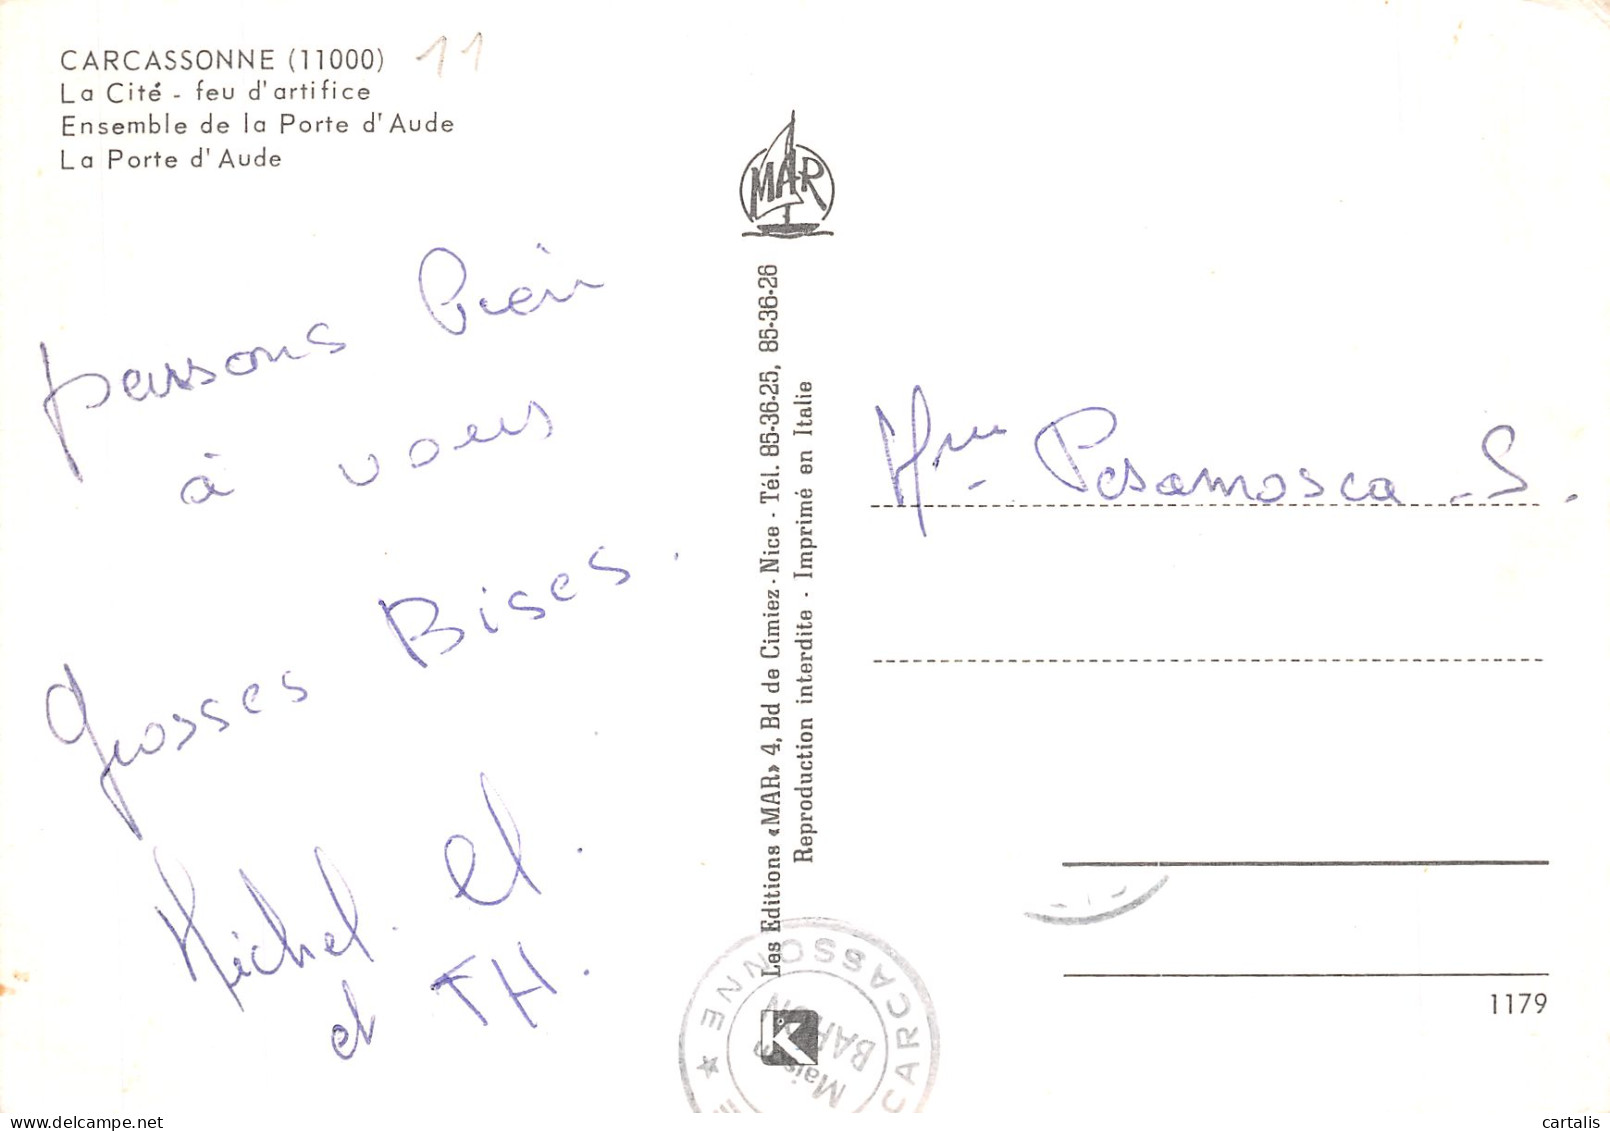 CARCASSONNE (11000) 11
La Cité - feu d'artifice
Ensemble de la Porte d'Aude
La Porte d'Aude
passons bien
à vous
Grosses Bises.
Michel. et.
et TH.
MAR
Les Editions «MAR» 4, Bd de Cimiez - Nice - Tél. 85-36-25, 85-36-26
Reproduction interdite - Imprimé en Italie
K
CARCASSONNE ★
BARON
Mme Pesamosca - S.
1179
www.delcampe.net
cartalis